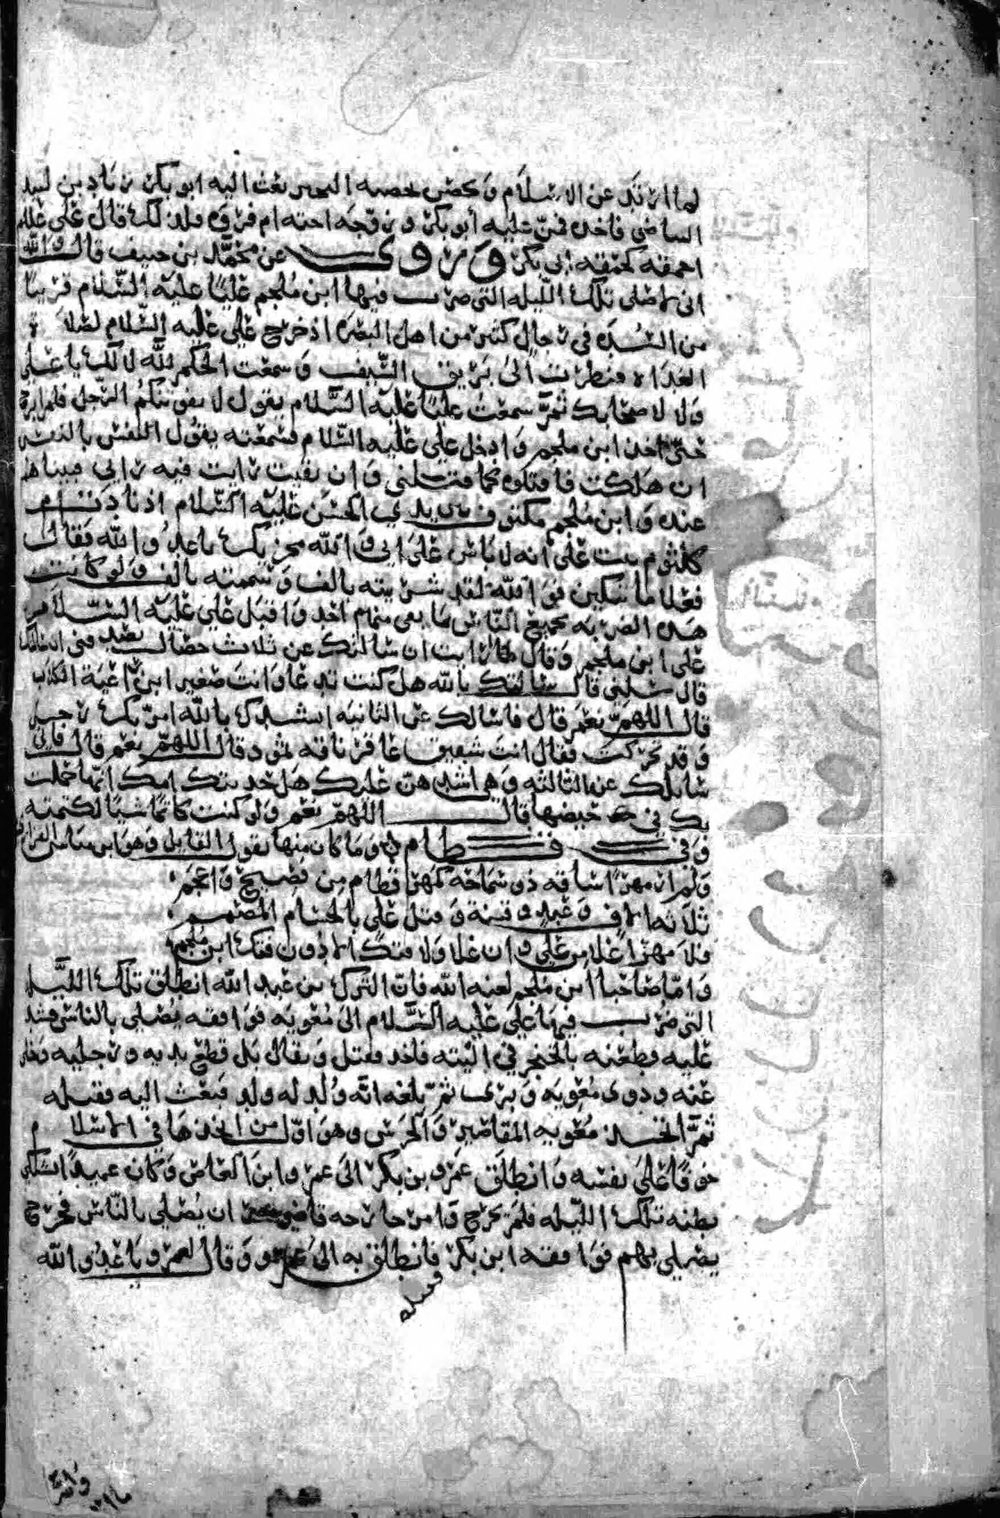 لما ارتد عن الاسلام وحصن بحصنه البحير بعث اليه ابو بكر زياد بن لبيد
البياضي فاخذه فمن عليه ابو بكر وزوجه اخته ام فروه فلذلك قال علي عليه
احمقه كحمقه ابي بكر وروي عن محمد بن حنيف قال والله
اني لاصلي تلك الليله التي ضرب فيها ابن ملجم عليا عليه السلام قريبا
من السده في رجال كثير من اهل البصره اذ خرج علي عليه السلام لصلاة
الغداه فنظرت الى بريق السيف وسمعت الحكم لله لا لك يا علي
ولا لاصحابك ثم سمعت عليا عليه السلام يقول لا يفوتنكم الرجل فلم ابرح
حتى اخذ ابن ملجم وادخل علي عليه السلام فسمعته يقول النفس بالنفس
ان هلكت فاقتلوه كما قتلني وان بقيت رايت فيه رايي فبينا هم
عنده وابن ملجم مكتوف بين يدي الحسن عليه السلام اذ نادت ام
كلثوم بنت علي انه لا باس على ابي والله مخزيك يا عدو الله فقال
فعلام تبكين فوالله لقد شريته بالف وسممته بالف ولو كانت
هذه الضربه بجميع الناس ما بقي منهم احد واقبل علي عليه السلام
على ابن ملجم وقال ارايت ان سالتك عن ثلاث خصال
قال سلني قال سالتك بالله هل كنت تدعا وانت صغير ابن راعية الكلاب
قال اللهم نعم قال فاسالك عن الثانيه انشدك بالله امر بك رجل
وقد تحركت فقال انت شقيق عاقر ناقه ثمود قال اللهم نعم قال فاني
سايلك عن الثالثه وهي اشدهن عليك هل حدثتك امك انها حملت
بك في حيضها قال اللهم نعم ولو كنت كاتما شيا لكتمته
وفي قطام وما كان منها يقول القايل وهو ابن مياس الفزاري
ولم ار مهرا ساقه ذو سماحه كمهر قطام من فصيح واعجم
ثلاثه الاف وعبد وقينة وقتل علي بالحسام المصمم
فلا مهر اغلا من علي وان غلا ولا فتك الا دون فتك ابن ملجم
واما صاحبا ابن ملجم لعنه الله فان البرك بن عبد الله انطلق تلك الليله
التي ضرب فيها علي عليه السلام الى معويه فوافقه يصلي بالناس فشد
عليه فطعنه بالخنجر في اليته فاخذ فقتل ويقال بل قطع يديه ورجليه وخلا
عنه ودوي معويه وبرى ثم بلغه انه ولد له ولد فبعث اليه فقتله
ثم اتخذ معويه المقاصير والحرس وهو اول من اتخذها في الاسلام
خوفا على نفسه وانطلق عمرو بن بكر الى عمرو ابن العاص وكان عميدا اشتكى
بطنه تلك الليله فلم يخرج وامر خارجه قاضي ان يصلي بالناس فخرج
يصلي بهم فوافقه ابن بكر فانطلق به الى عمرو وقال لعمرو يا عدو الله
فقتله